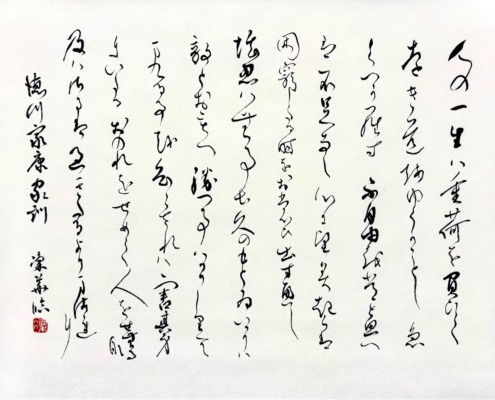 人の一生ハ重荷を負ひて
遠き道をゆくかことし 急
くへからす 不自由を常と思へ
は不足なし 心に望おこらは
困窮したる時をおもひ出すへし
堪忍ハ無事長久のもとゐ いかりハ
敵とおもへ 勝つ事はかりしりて
まくる事をしらされハ 害其身
にいたる おのれをせめて人を
及ハさるは過きたるより
徳川家康家訓